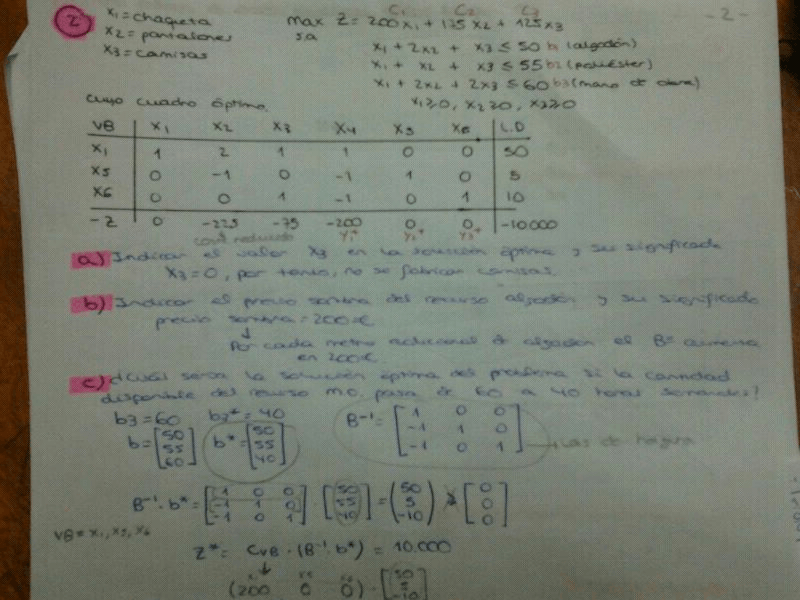 2 x₁ = chaqueta
x₂ = pantalones
x₃ = camisas
C₁ C₂ C₃
max Z = 200x₁ + 175x₂ + 125x₃
s.a
x₁ + 2x₂ + x₃ ≤ 50 b₁ (algodón)
x₁ + x₂ + x₃ ≤ 55 b₂ (poliéster)
x₁ + 2x₂ + 2x₃ ≤ 60 b₃ (mano de obra)
x₁≥0, x₂≥0, x₃≥0
- 2 -
cuyo cuadro óptimo
VB x₁ x₂ x₃ x₄ x₅ x₆ L.D
x₁ 1 2 1 1 0 0 50
x₅ 0 -1 0 -1 1 0 5
x₆ 0 0 1 -1 0 1 10
-Z 0 -225 -75 -200 0 0 -10.000
coste reducido y₁* y₂* y₃*
a) Indicar el valor x₃ en la solución óptima y su significado
x₃ = 0, por tanto, no se fabrican camisas.
b) Indicar el precio sombra del recurso algodón y su significado
precio sombra = 200€
↓
Por cada metro adicional de algodón el Bº aumenta
en 200€.
c) ¿Cuál sería la solución óptima del problema si la cantidad
disponible del recurso m.o. pasa de 60 a 40 horas semanales?
b₃ = 60 b₃* = 40
b = [50 55 60] b* = [50 55 40]
B⁻¹ = [1 0 0
-1 1 0
-1 0 1] → Las de holgura
B⁻¹ · b* = [1 0 0
-1 1 0
-1 0 1] · [50 55 -10] = (50 5 -10) ≱ [0 0 0]
VB = x₁, x₅, x₆
Z* = C_VB · (B⁻¹ · b*) = 10.000
↓
(200 0 0) · [50 5 -10]